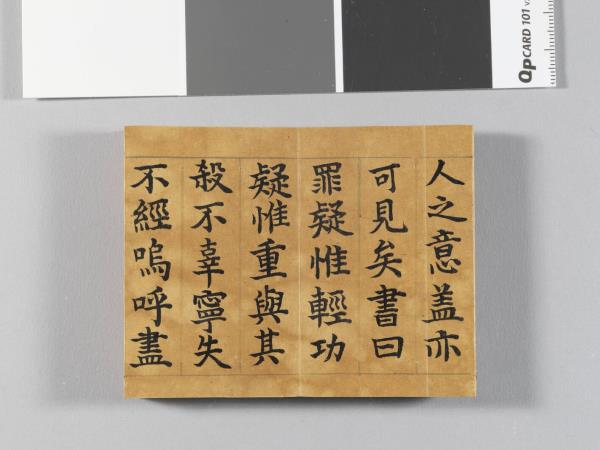 人之意盖亦
可見矣書曰
罪疑惟輕功
疑惟重與其
殺不辜寧失
不經嗚呼盡
QpCARD 101